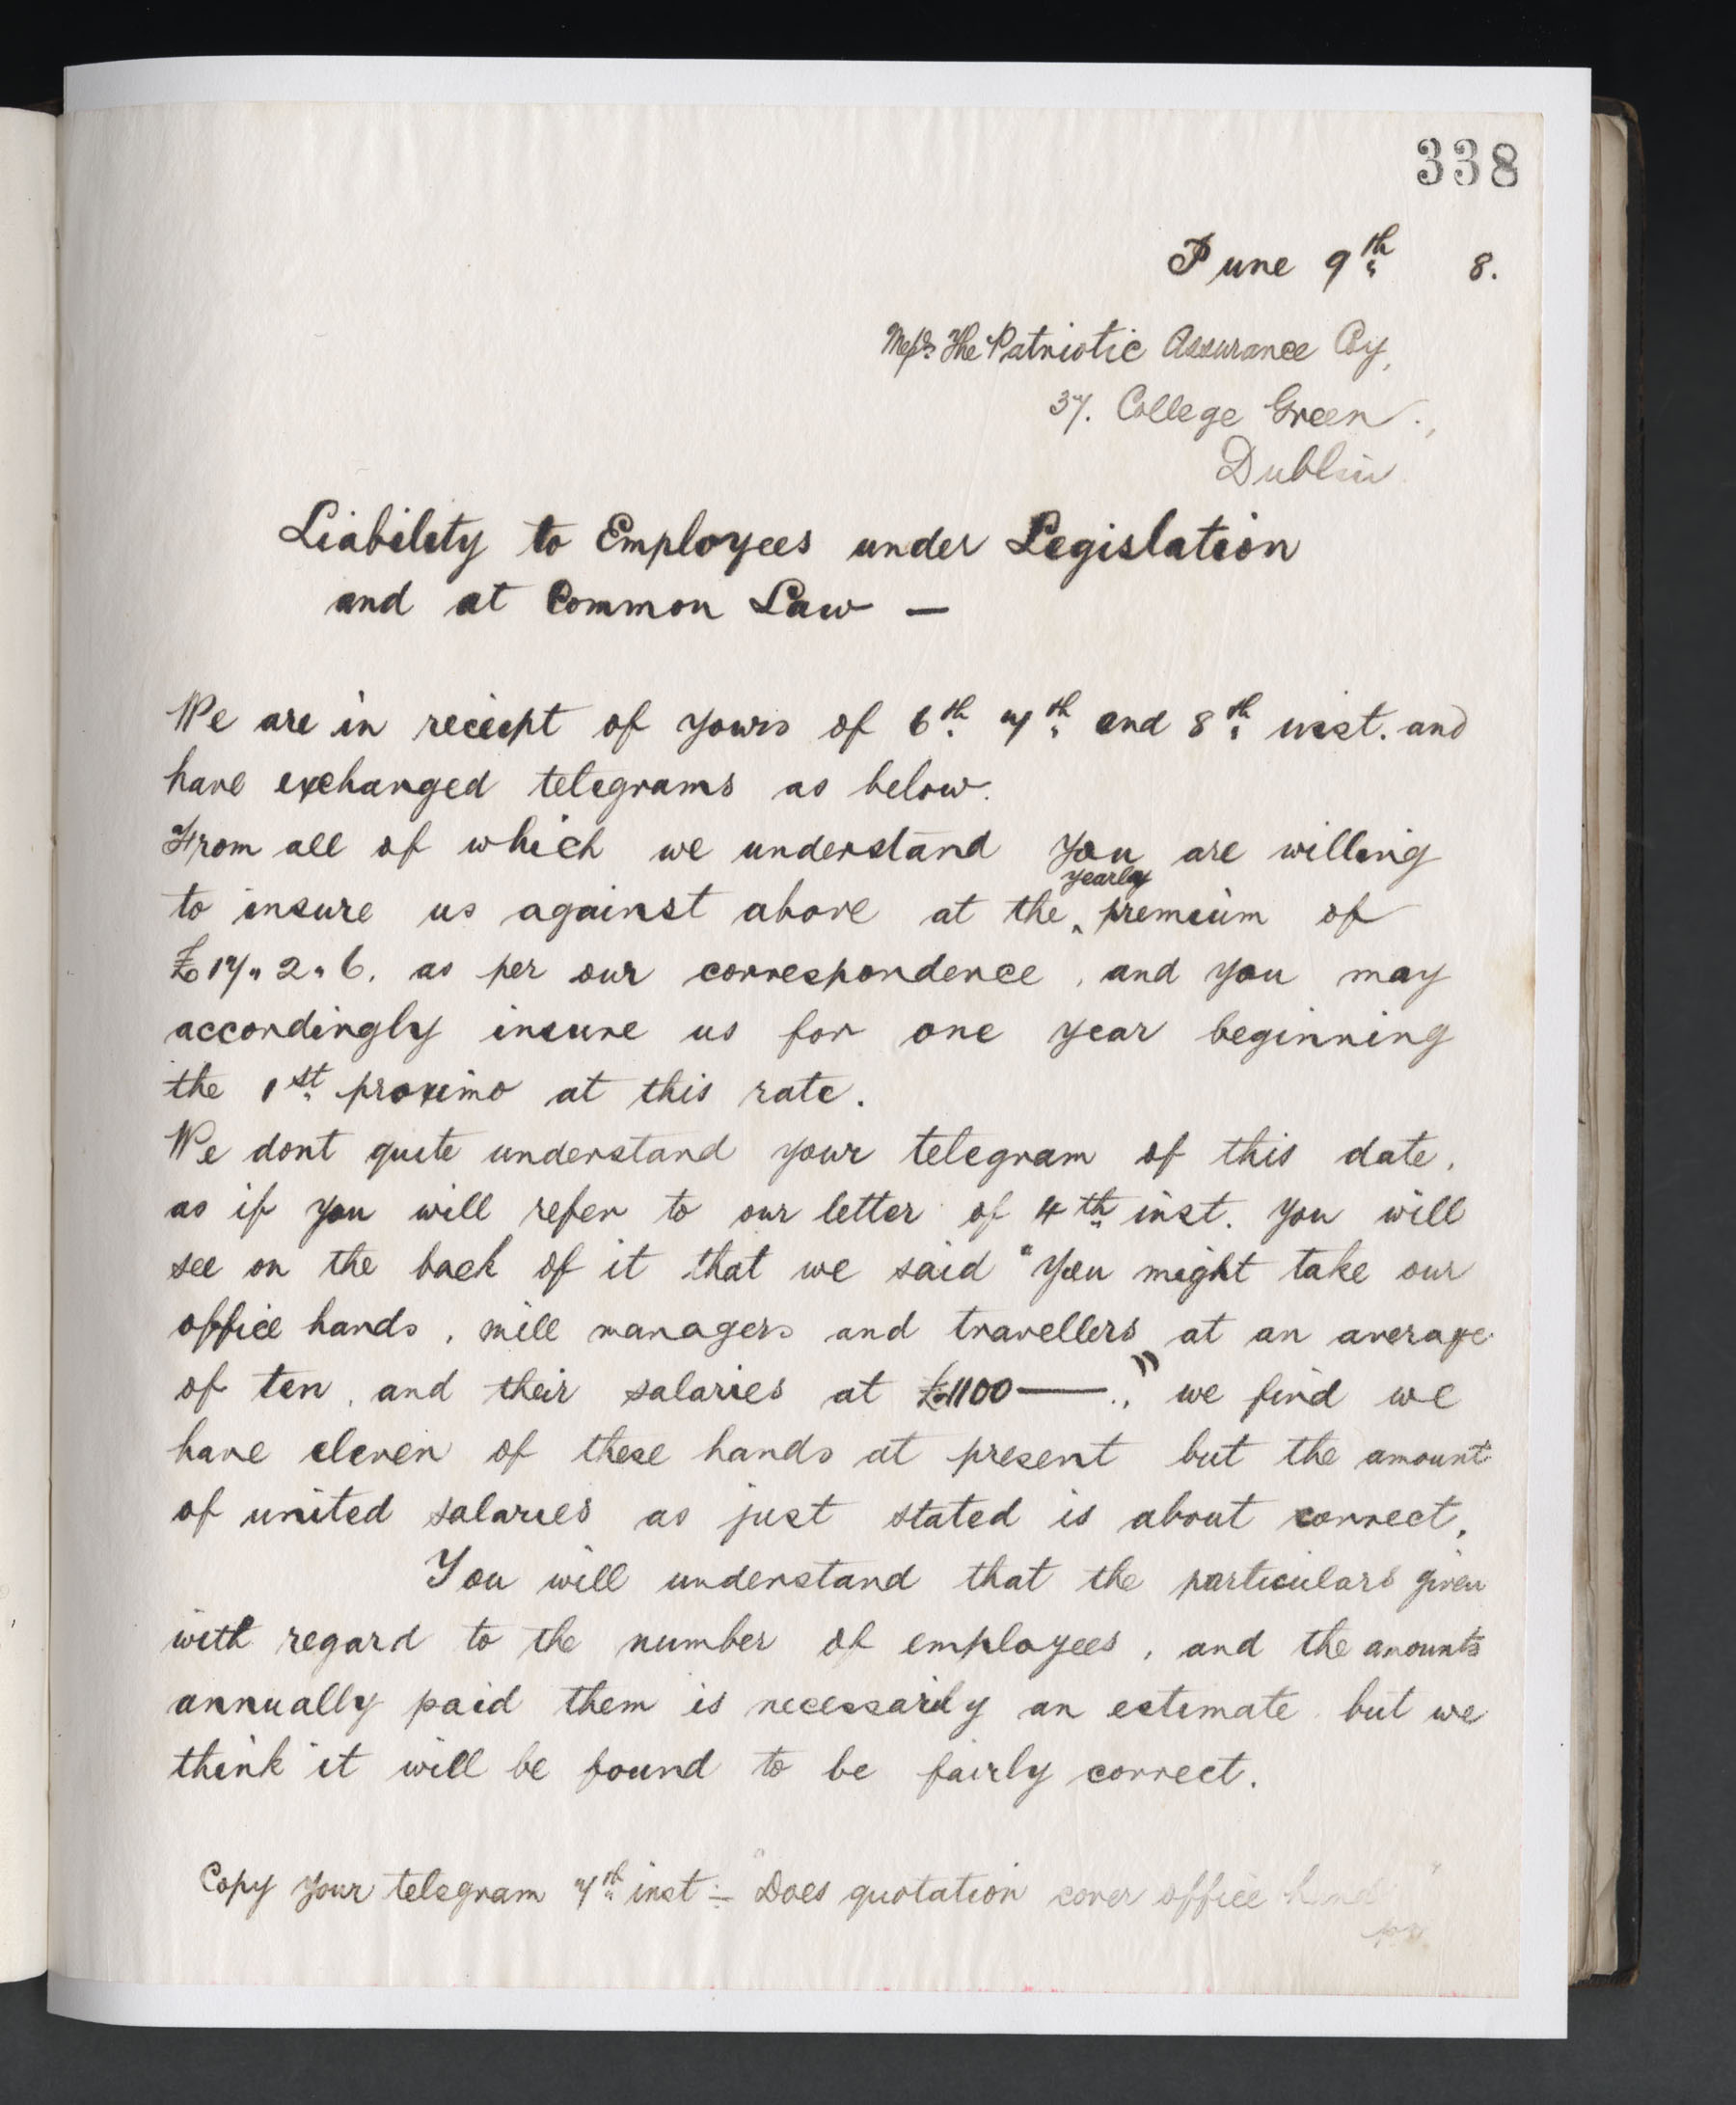 338
June 9th 8.
Messrs The Patriotic Assurance Coy,
37. College Green.,
Dublin
Liability to Employees under Legislation
and at Common Law —
We are in reciept of yours of 6th 7th and 8th inst. and
have exchanged telegrams as below.
From all of which we understand you are willing
yearly
to insure us against above at the ‸ premium of
£17„2„6. as per our correspondence, and you may
accordingly insure us for one year beginning
the 1st proximo at this rate.
We dont quite understand your telegram of this date,
as if you will refer to our letter of 4th inst. you will
see on the back of it that we said "You might take our
office hands, mill managers and travellers at an average
of ten, and their salaries at £1100 —.," we find we
have eleven of these hands at present but the amount
of united salaries as just stated is about correct.
You will understand that the particulars given
with regard to the number of employees, and the amounts
annually paid them is necessarily an estimate but we
think it will be found to be fairly correct.
Copy your telegram 7th inst:- "Does quotation cover office hands"